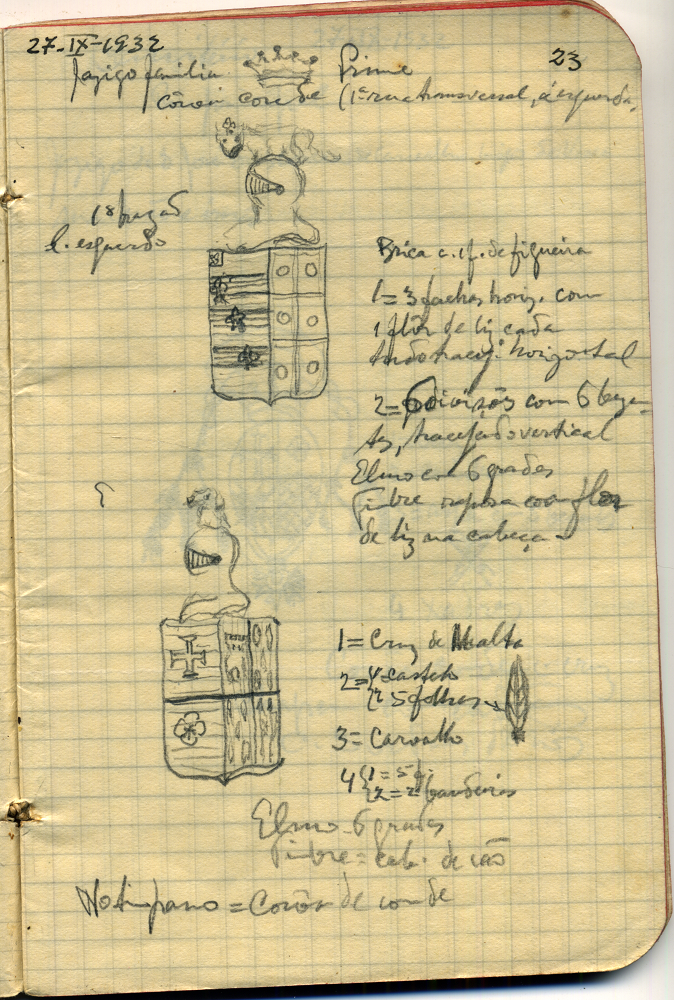 27-IX-1932
23
Jazigo familia Prime
corôa conde (1ª rua transversal, á esquerda,
1º brazão
l. esquerdo
Brica c. 1 f. de figueira
1 = 3 fachas horiz. com
1 flôr de liz cada
tudo tracej. horizontal
2 = 6 divisões com 6 besan-
tes, tracejado vertical
Elmo com 6 grades
Timbre raposa com flor
de liz na cabeça
1 = Cruz de Malta
2 = 1 = castelo
2 = 5 folhas
3 = Carvalho
4 1 = 5 f.
2 = 2 bandeiras
Elmo - 6 grades
Timbre = cab. de cão
No timpano = Corôa de conde